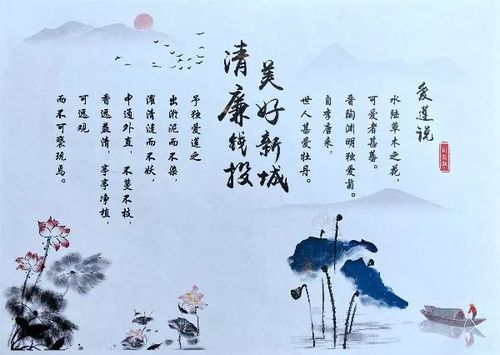 爱莲说
水陆草木之花，
可爱者甚蕃。
晋陶渊明独爱菊。
自李唐来，
世人甚爱牡丹。
美好新城
清廉钱投
予独爱莲之
出淤泥而不染，
濯清涟而不妖，
中通外直，不蔓不枝，
香远益清，亭亭净植，
可远观
而不可亵玩焉。